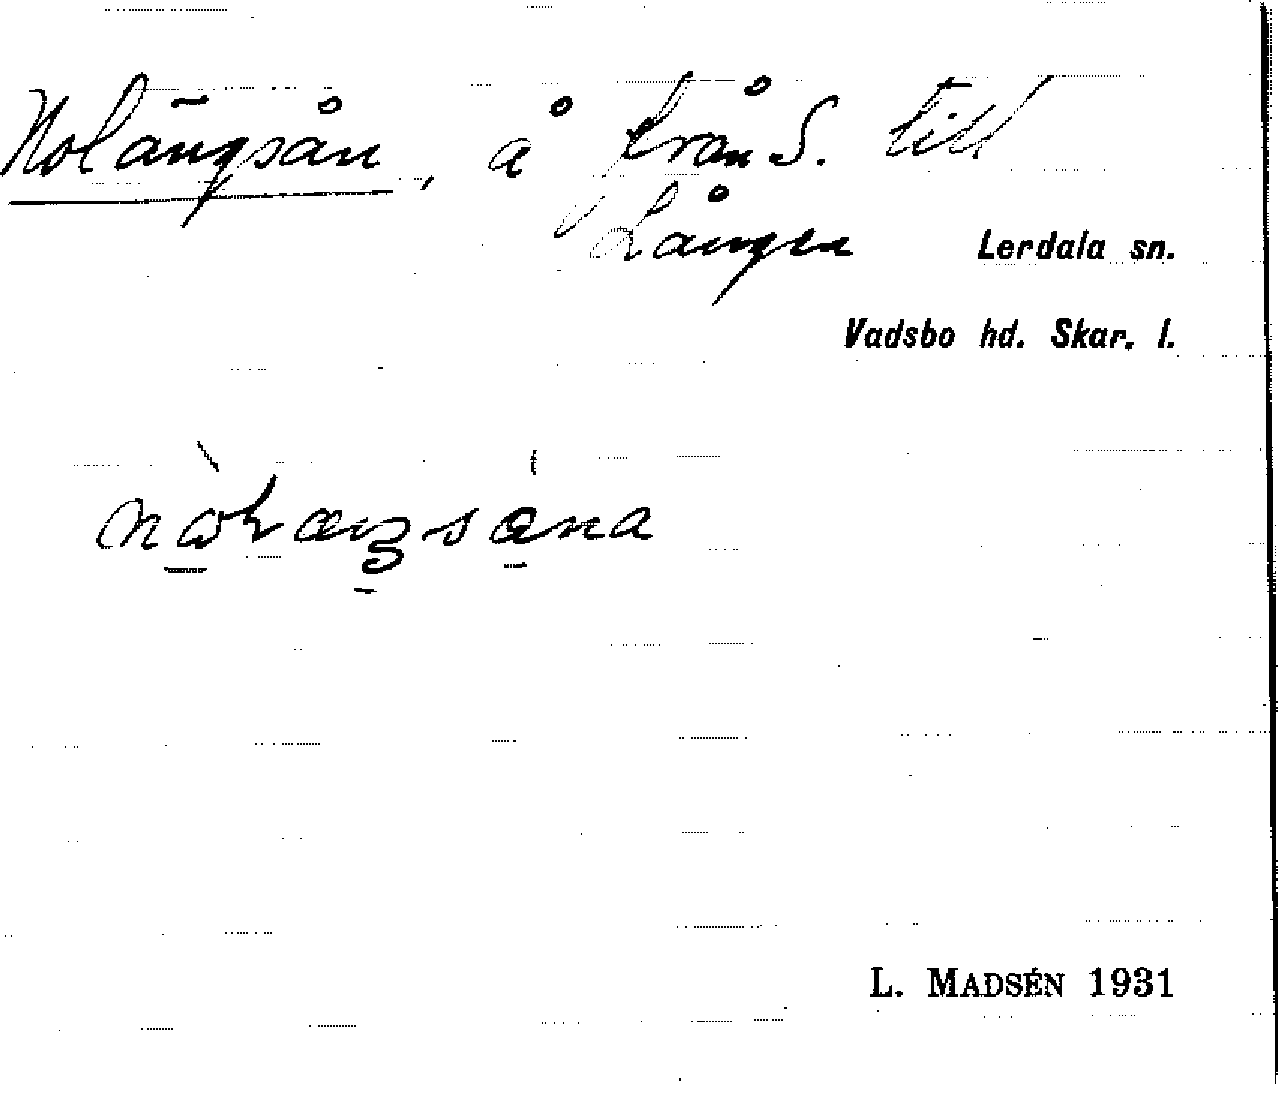 Nolängsån, å från S. till
Lången
Lerdala sn.
Vadsbo hd. Skar. l.
L. MADSÉN 1931